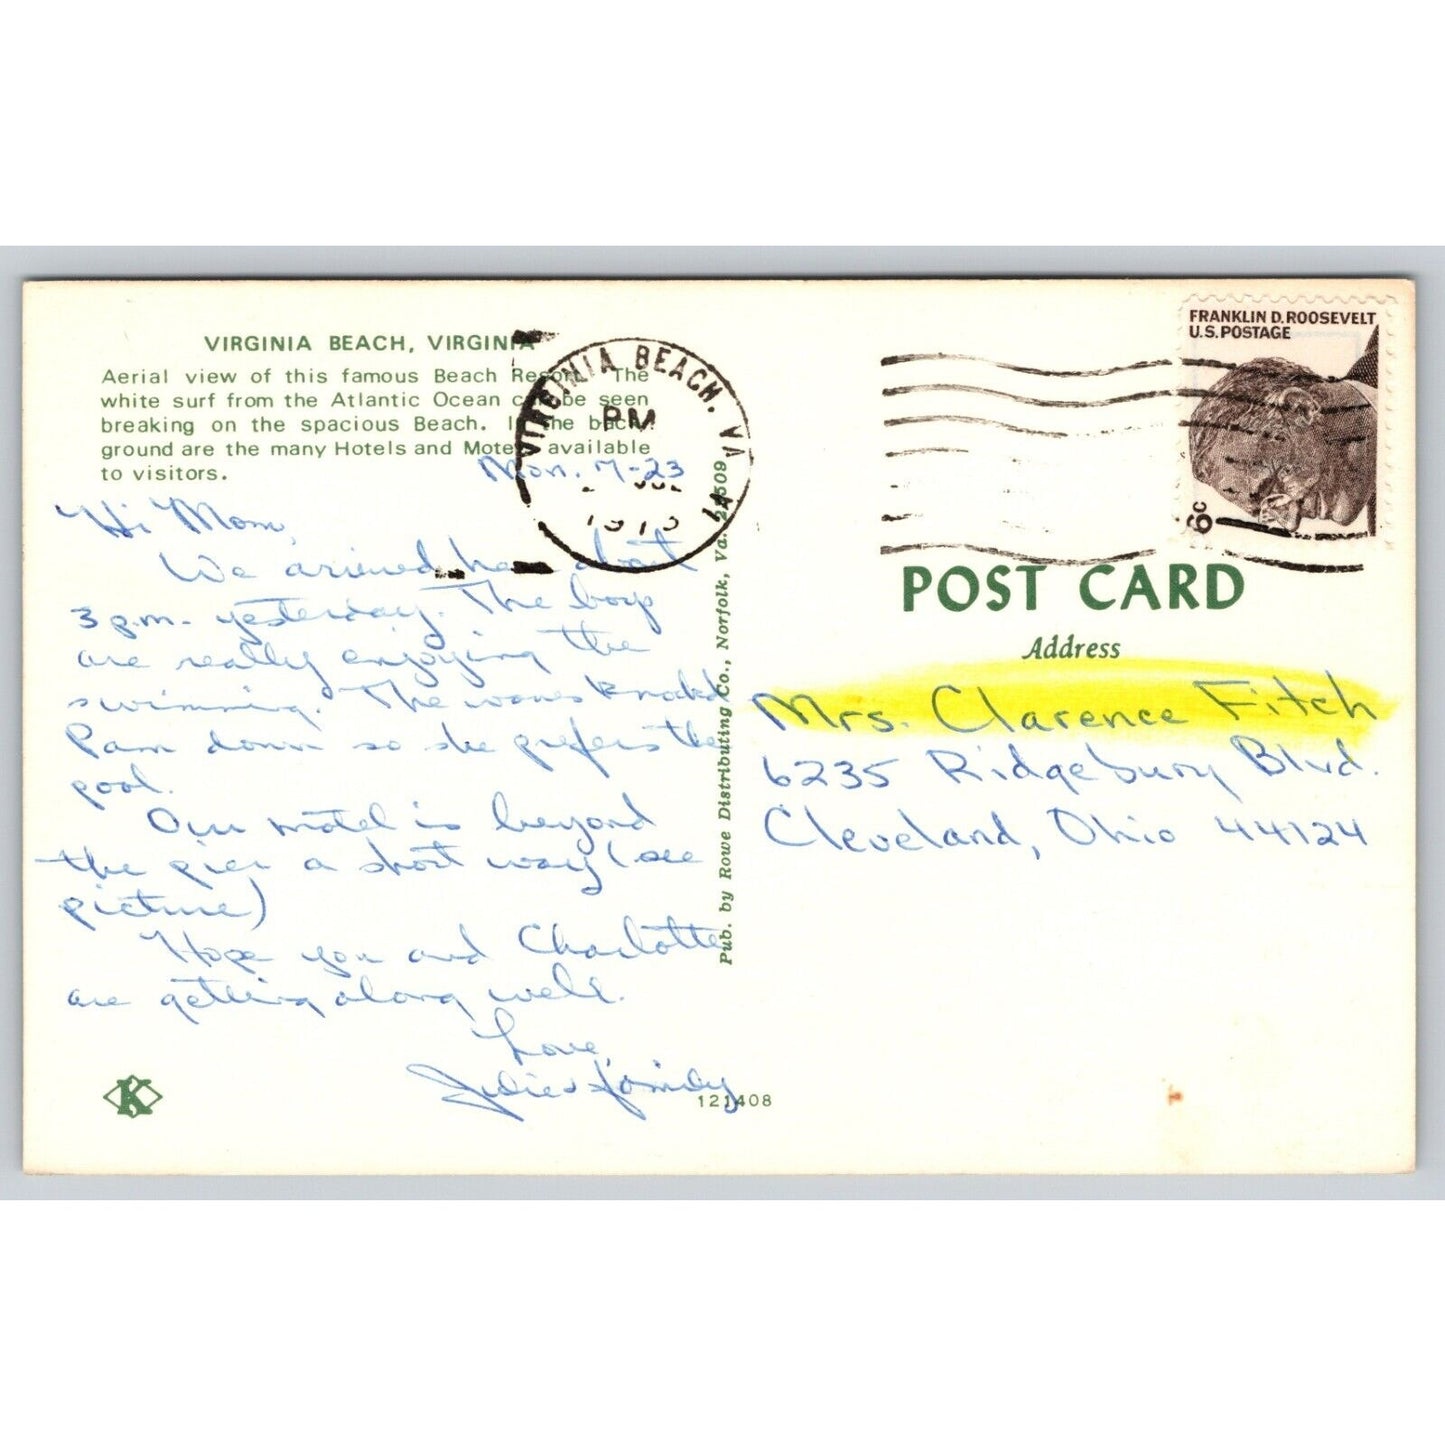 VIRGINIA BEACH, VIRGINIA
Aerial view of this famous Beach Resort. The
white surf from the Atlantic Ocean can be seen
breaking on the spacious Beach. In the back
ground are the many Hotels and Motels available
to visitors.
Mon. 7-23
Hi Mom,
We arrived here about
3 p.m. yesterday. The boys
are really enjoying the
swimming. The waves knocked
Pam down so she prefers the
pool.
Our motel is beyond
the pier a short way (see
picture)
Hope you and Charlotte
are getting along well.
Love,
Julie & family
K
121408
Pub. by Rowe Distributing Co., Norfolk, Va. 23509
VIRGINIA BEACH, VA
PM
JUL
FRANKLIN D. ROOSEVELT
U.S. POSTAGE
6c
POST CARD
Address
Mrs. Clarence Fitch
6235 Ridgebury Blvd.
Cleveland, Ohio 44124